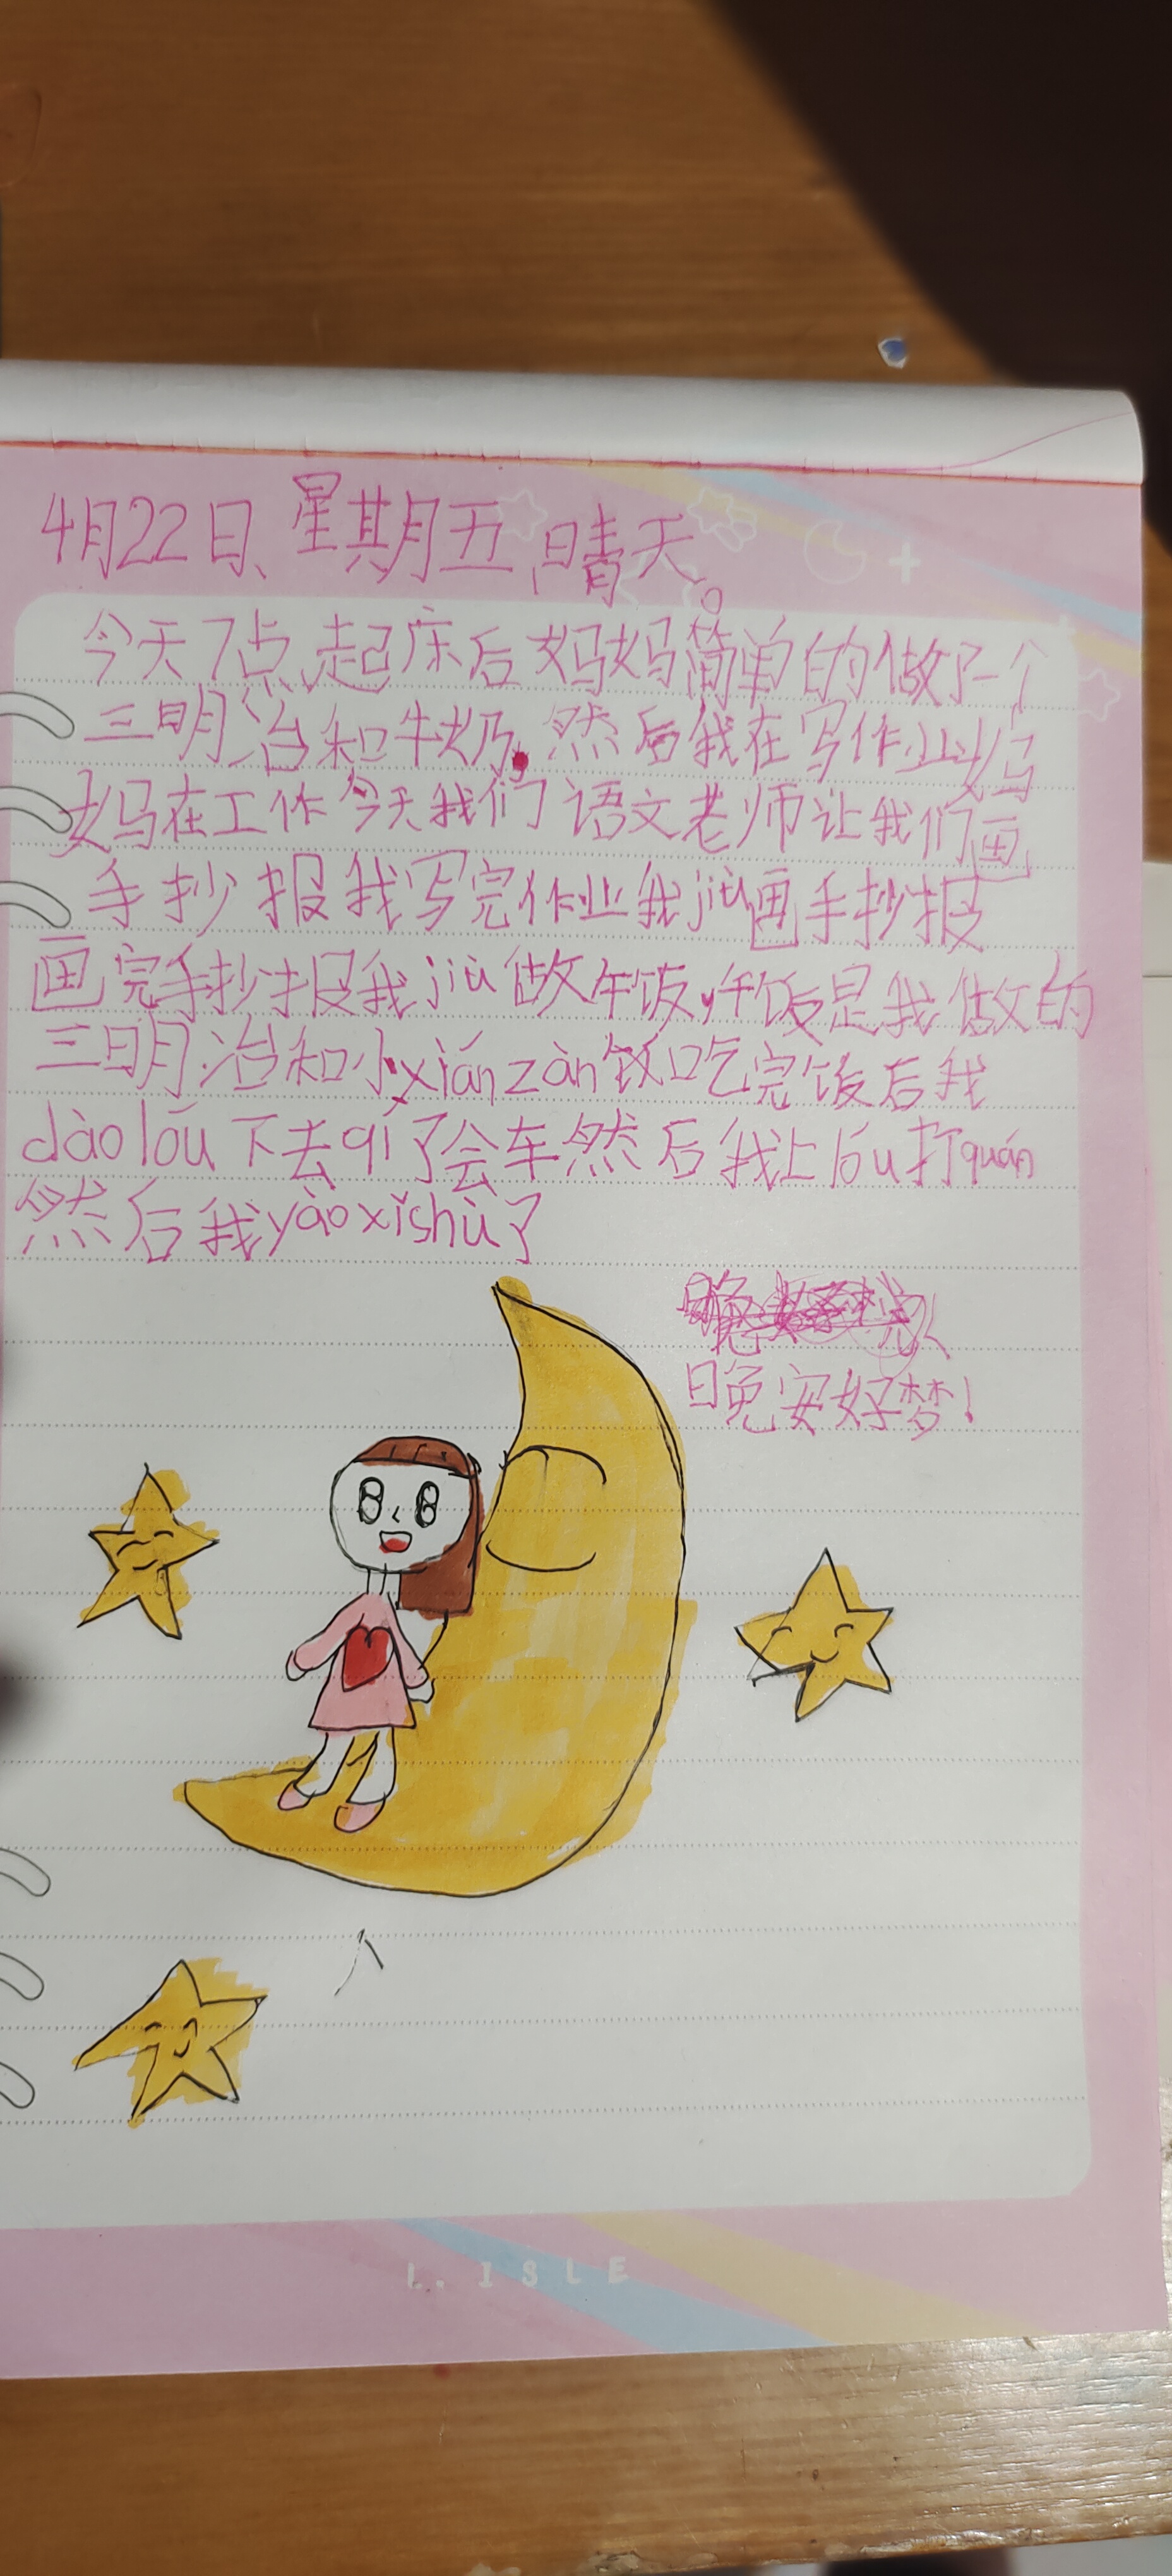 4月22日、星期五、晴天。
今天7点、起床后妈妈简单的做了一个
三明治和牛奶.然后我在写作业妈
妈在工作今天我们语文老师让我们画
手抄报我写完作业我jiù画手抄报
画完手抄报我jiù做午饭,午饭是我做的
三明治和小xián zàn饭吃完饭后我
dào lóu下去qí了会车然后我上lóu打quán
然后我yào xǐ shù了
晚安好梦!
L. ISLE